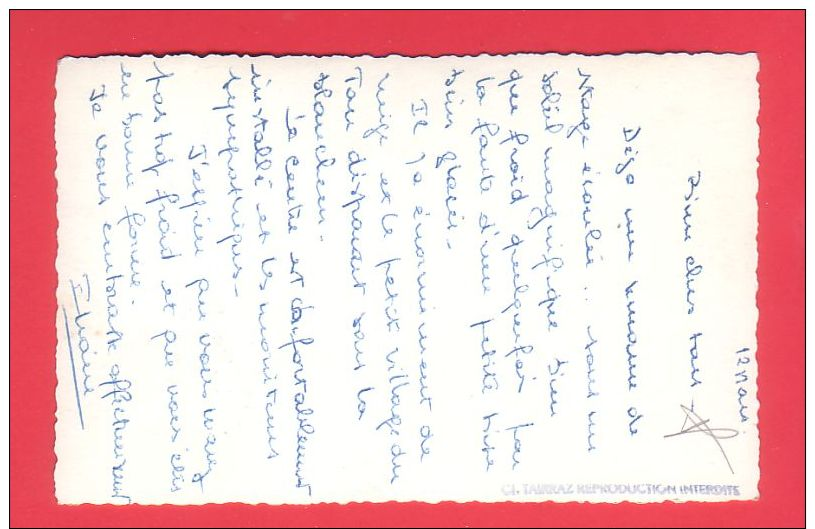 12 Mars.
Bien chers tous
Déjà une semaine de
stage écoulée .. sous un
soleil magnifique bien
que froid quelquefois par
la faute d'une petite bise
bien glacée -
Il y a énormément de
neige et le petit village du
Tour disparait sous la
blancheur -
Le centre est confortablement
installé et les moniteurs
sympathiques -
J'espère que vous n'avez
pas trop froid et que vous êtes
en bonne forme -
Je vous embrasse affectueusement
CL. TAIRRAZ REPRODUCTION INTERDITE